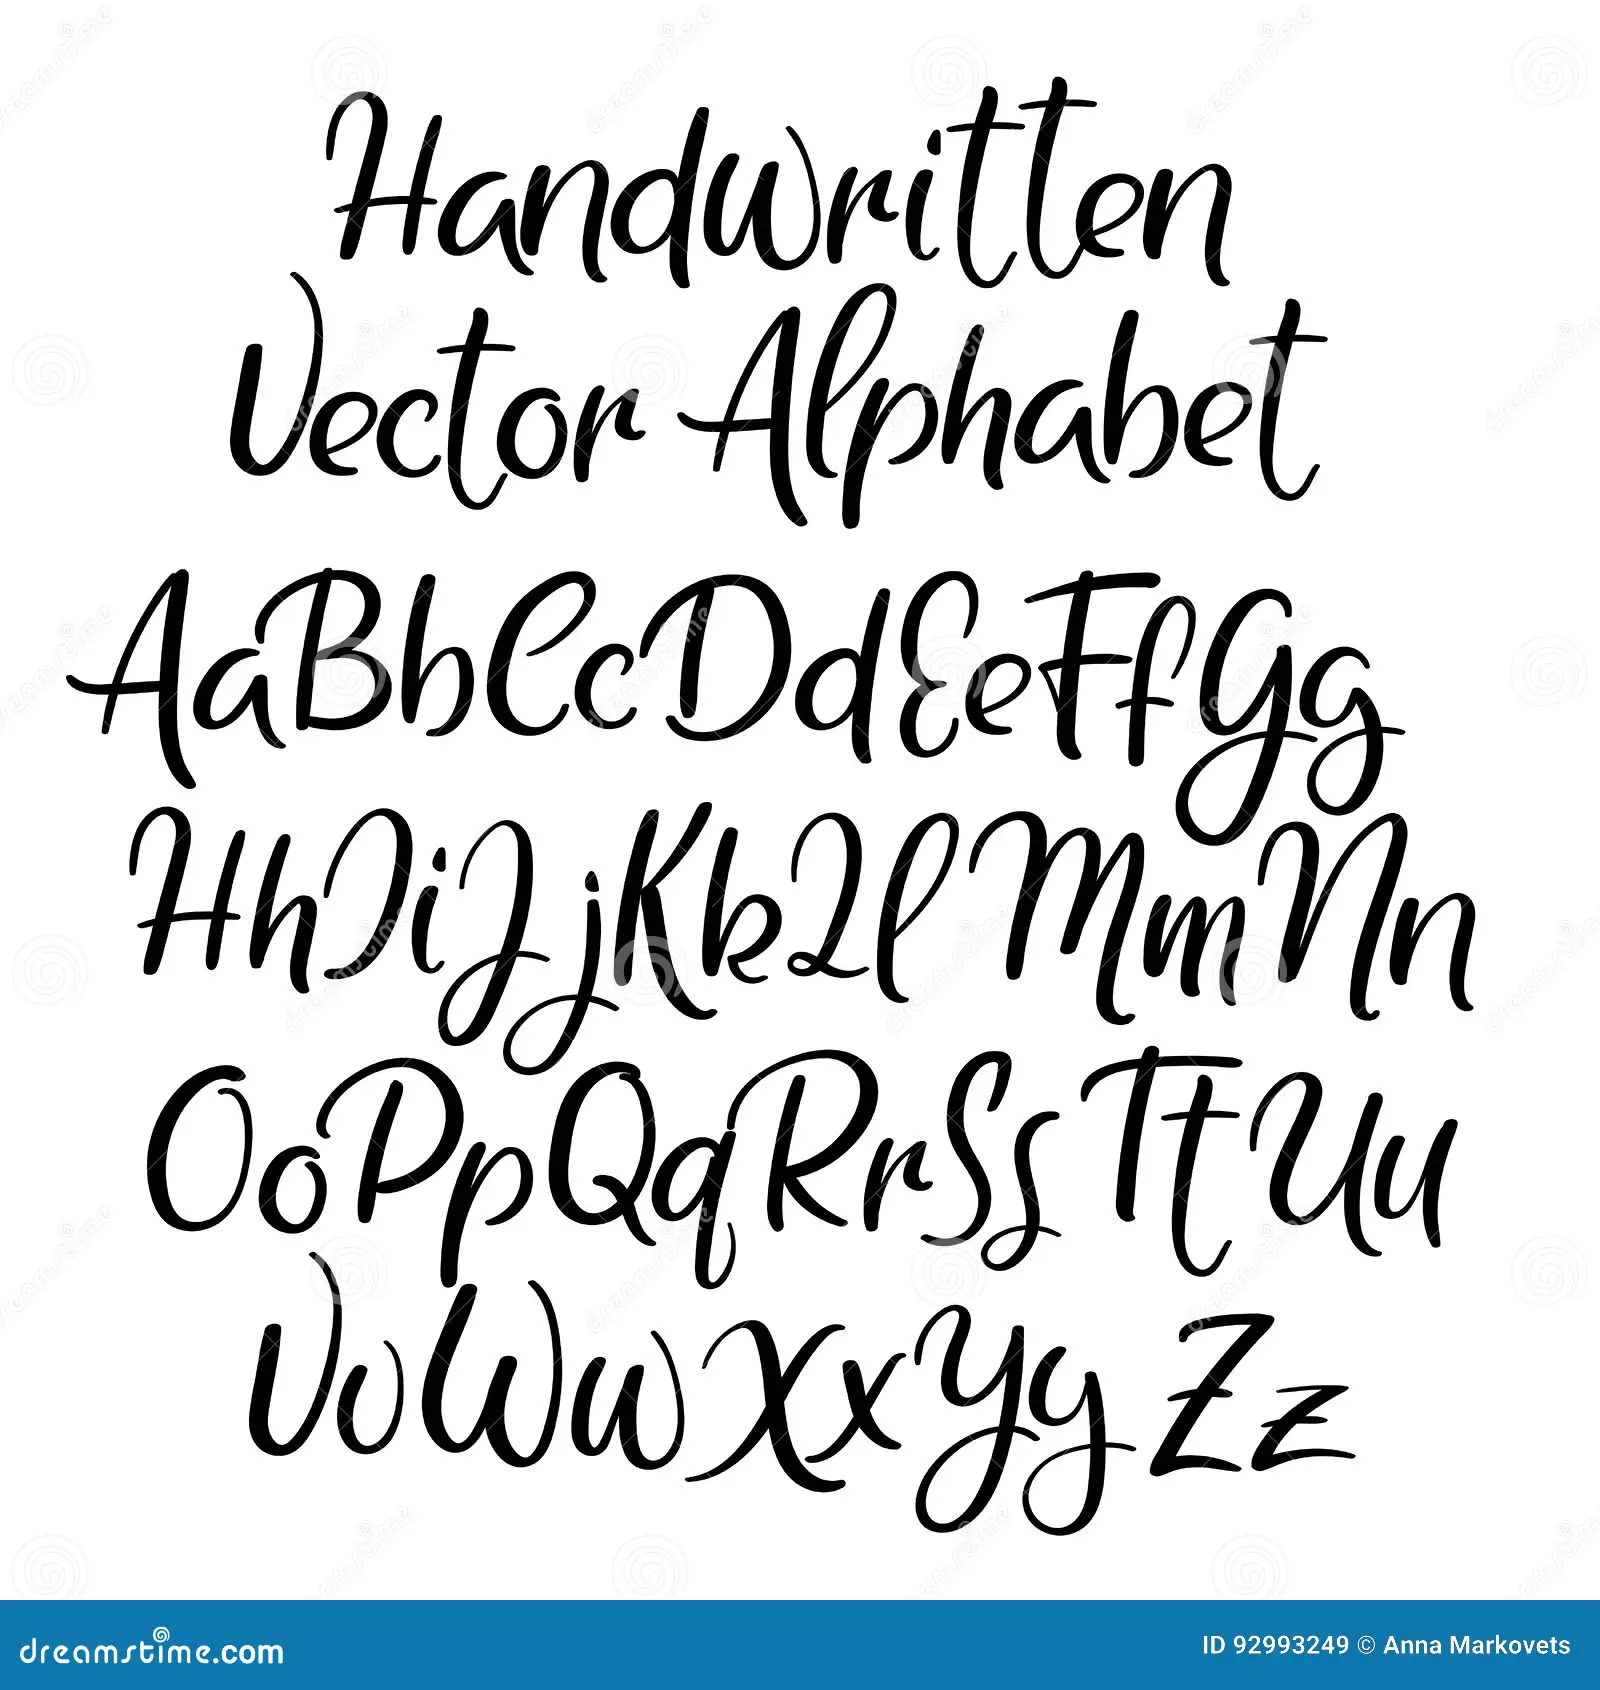 Handwritten
Vector Alphabet
AaBbCcDdEeFfGg
HhIiJjKkLlMmNn
OoPpQqRrSsTtUu
VvWwXxYyZz
dreamstime.com
ID 92993249 © Anna Markovets